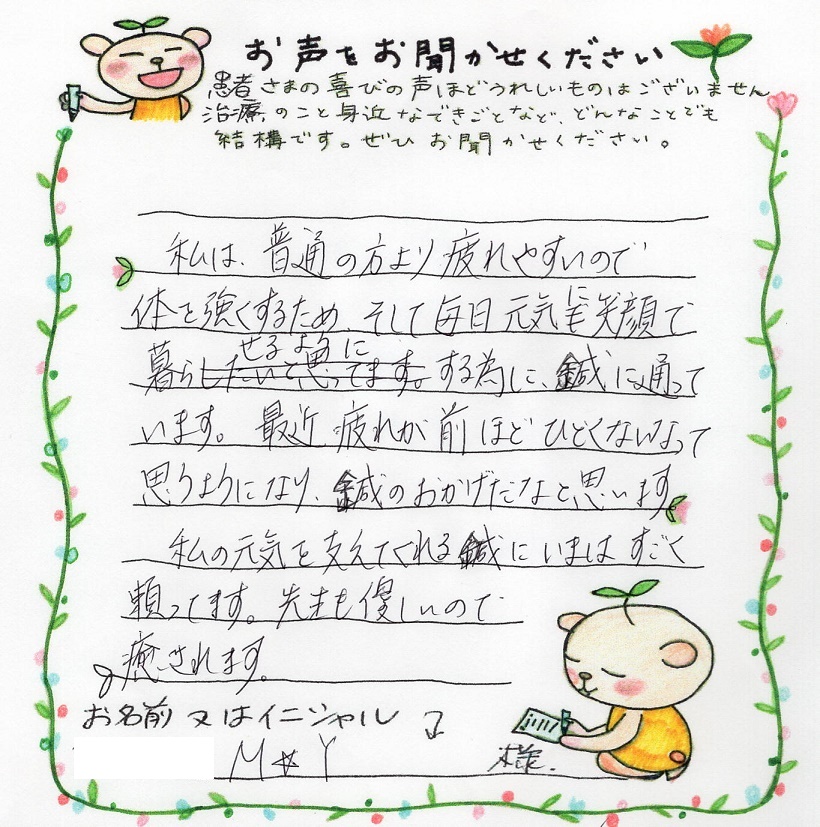 お声をお聞かせください
患者さまの喜びの声ほどうれしいものはございません
治療のこと身近なできごとなど、どんなことでも
結構です。ぜひ お聞かせください。
私は、普通の方より疲れやすいので
体を強くするため、そして毎日元気に笑顔で
せるように
暮らしたいと思ってます。する為に、鍼に通って
います。最近、疲れが前ほどひどくないなって
思うようになり、鍼のおかげだなと思います。
私の元気を支えてくれる鍼にいまはすごく
頼ってます。先生も優しいので
癒されます。
お名前 又はイニシャル
M☆Y 様.